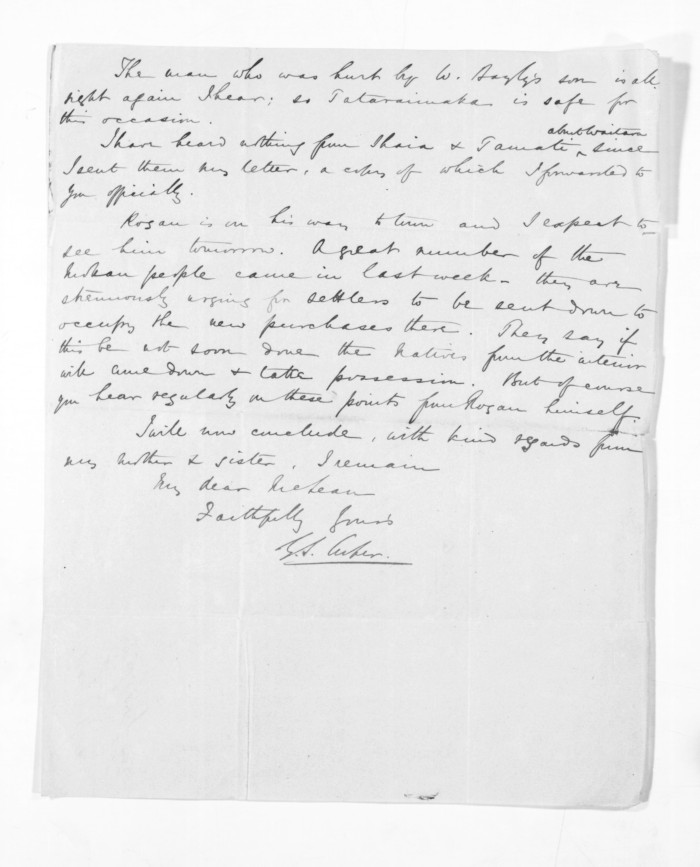 The man who was hurt by W. Bayly's son is all
right again I hear; so Tataraimaka is safe for
this occasion.
about Waitara
I have heard nothing from Ihaia & Tamati ^ since
I sent them my letter, a copy of which I forwarded to
you officially.
Rogan is on his way to town and I expect to
see him tomorrow. A great number of the
Mokau people came in last week - they are
strenuously urging for settlers to be sent down to
occupy the new purchases there. They say if
this be not soon done the Natives from the interior
will come down & take possession. But of course
you hear regularly on these points from Rogan himself.
I will now conclude, with kind regards from
my mother & sister, I remain
My dear McLean
Faithfully yours
G.S. Cooper.